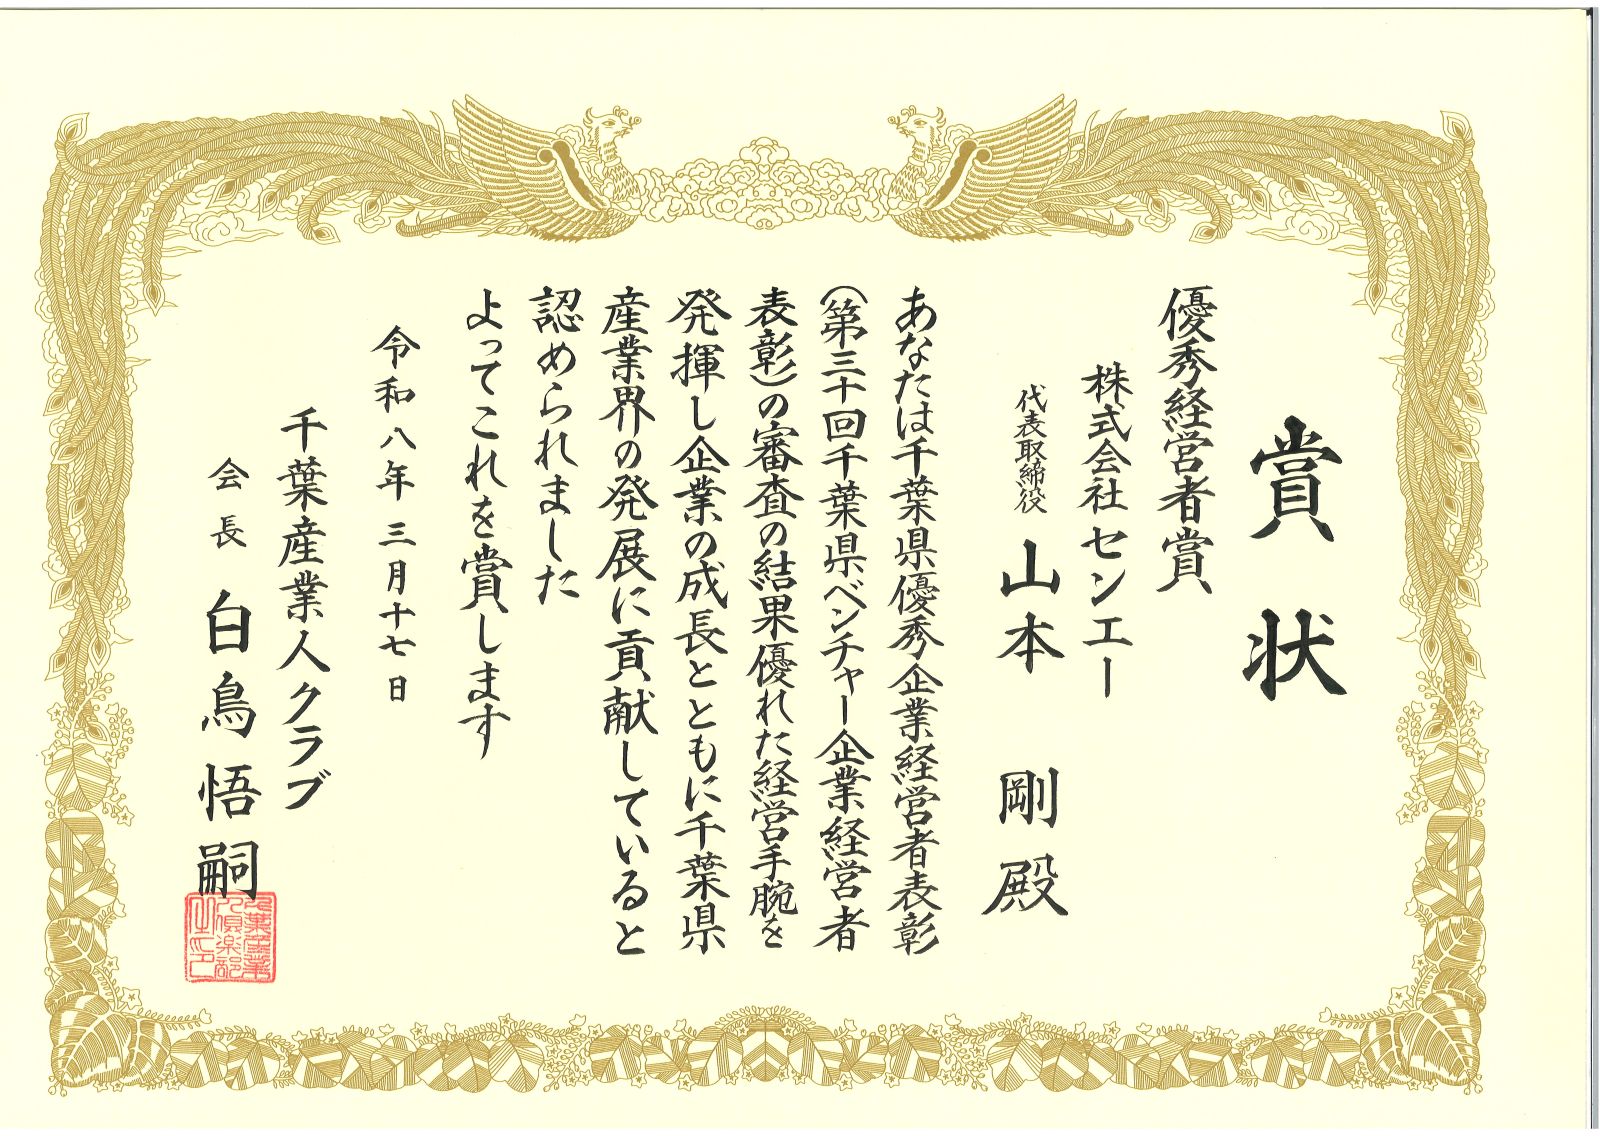 賞状
優秀経営者賞
株式会社センエー
代表取締役 山本 剛 殿
あなたは千葉県優秀企業経営者表彰
(第三十回千葉県ベンチャー企業経営者
表彰)の審査の結果優れた経営手腕を
発揮し企業の成長とともに千葉県
産業界の発展に貢献していると
認められました
よってこれを賞します
令和八年三月十七日
千葉産業人クラブ
会長 白鳥悟嗣